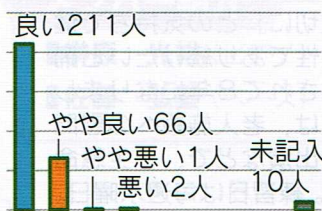 良い211人
やや良い66人
やや悪い1人
悪い2人
未記入
10人